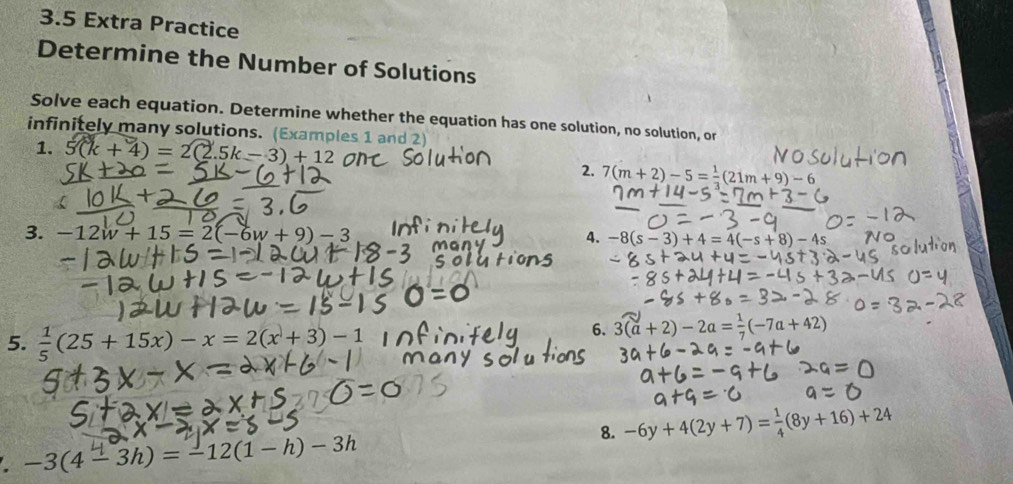 3.5 Extra Practice
Determine the Number of Solutions
Solve each equation. Determine whether the equation has one solution, no solution, or
infinitely many solutions. (Examples 1 and 2)
1. 5(k + 4) = 2(2.5k − 3) + 12 one solution
5k + 20 = 5k − 6 + 12
10k + 26 = 3.6
10 10
2. 7(m + 2) − 5 = 1/3(21m + 9) − 6
No solution
7m + 14 − 5 = 7m + 3 − 6
0 = −3 − 9 0 = −12
3. −12w + 15 = 2(−6w + 9) − 3 Infinitely
many
solutions
−12w + 15 = −12w + 18 − 3
−12w + 15 = −12w + 15
12w + 12w = 15 − 15 0 = 0
4. −8(s − 3) + 4 = 4(−s + 8) − 4s No solution
−8s + 24 + 4 = −4s + 32 − 4s
−8s + 24 + 4 = −4s + 32 − 4s 0 = 4
−8s + 8s = 32 − 28 0 = 32 − 28
5. 1/5(25 + 15x) − x = 2(x + 3) − 1 Infinitely
many solutions
5 + 3x − x = 2x + 6 − 1
5 + 2x = 2x + 5 0 = 0
2x − 2x = 5 − 5
6. 3(a + 2) − 2a = 1/7(−7a + 42)
3a + 6 − 2a = −a + 6
a + 6 = −a + 6 2a = 0
a + a = 0 a = 0
−3(4 − 3h) = −12(1 − h) − 3h
8. −6y + 4(2y + 7) = 1/4(8y + 16) + 24